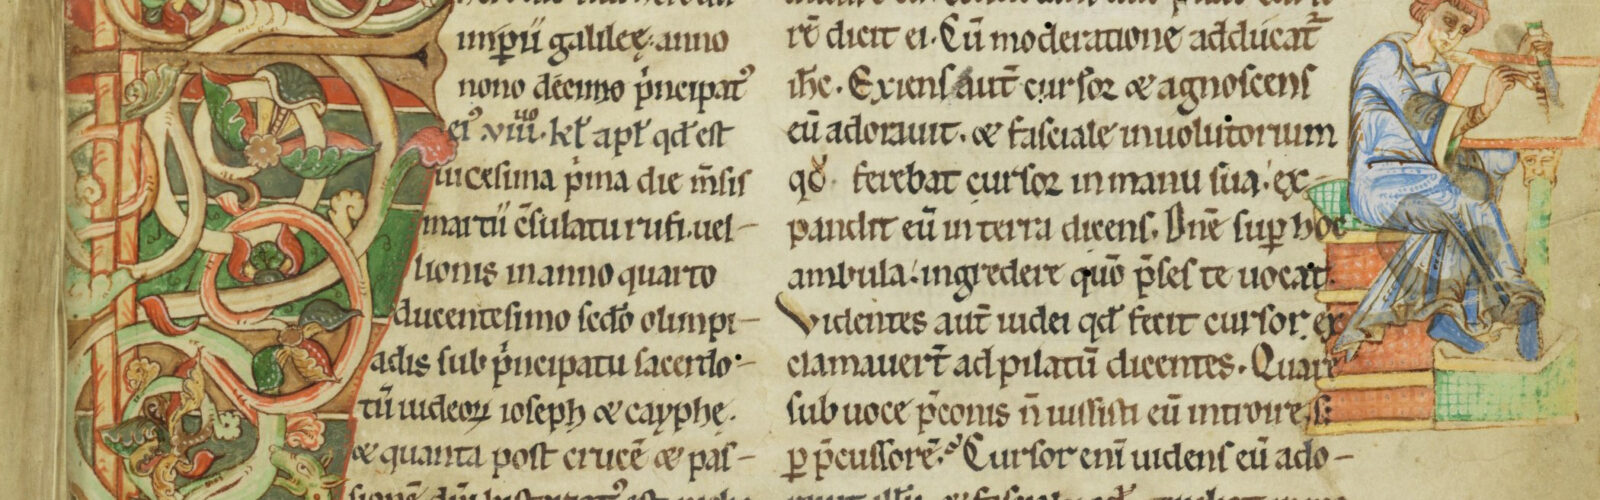 imp̄ıı galileę. anno
nono decimo p̍ncipat᷒
ei᷒ .viiii. kł apł qđ est
uicesima p̍ma die m̄sis
martii c̄sulatu rufi. uel-
lionis in anno quarto
ducentesimo secd̄o olimpi-
adis sub p̍ncipatu sacerdo-
tū iudeoꝝ ioseph & cayphę.
& quanta post crucē & pas-
rē dicit ei. Cū moderatione adducat᷑
ihc̄. Exiens aut̄ cursor & agnoscens
eū adorauit. & fasciale inuolutorium
qđ ferebat cursor in manu sua. ex-
pandit eū in terra dicens. Dn̄e suꝑ hoc
ambula. ingredere quō p̄ses te uocat.
Videntes aut̄ iudei qđ fecit cursor ex
clamauer̄t ad pilatū dicentes. Quare
sub uoce p̄conis n̄ iussisti eū introire. s;
ꝑ p̄cussorē. Cursor eni̅ uidens eū ado-